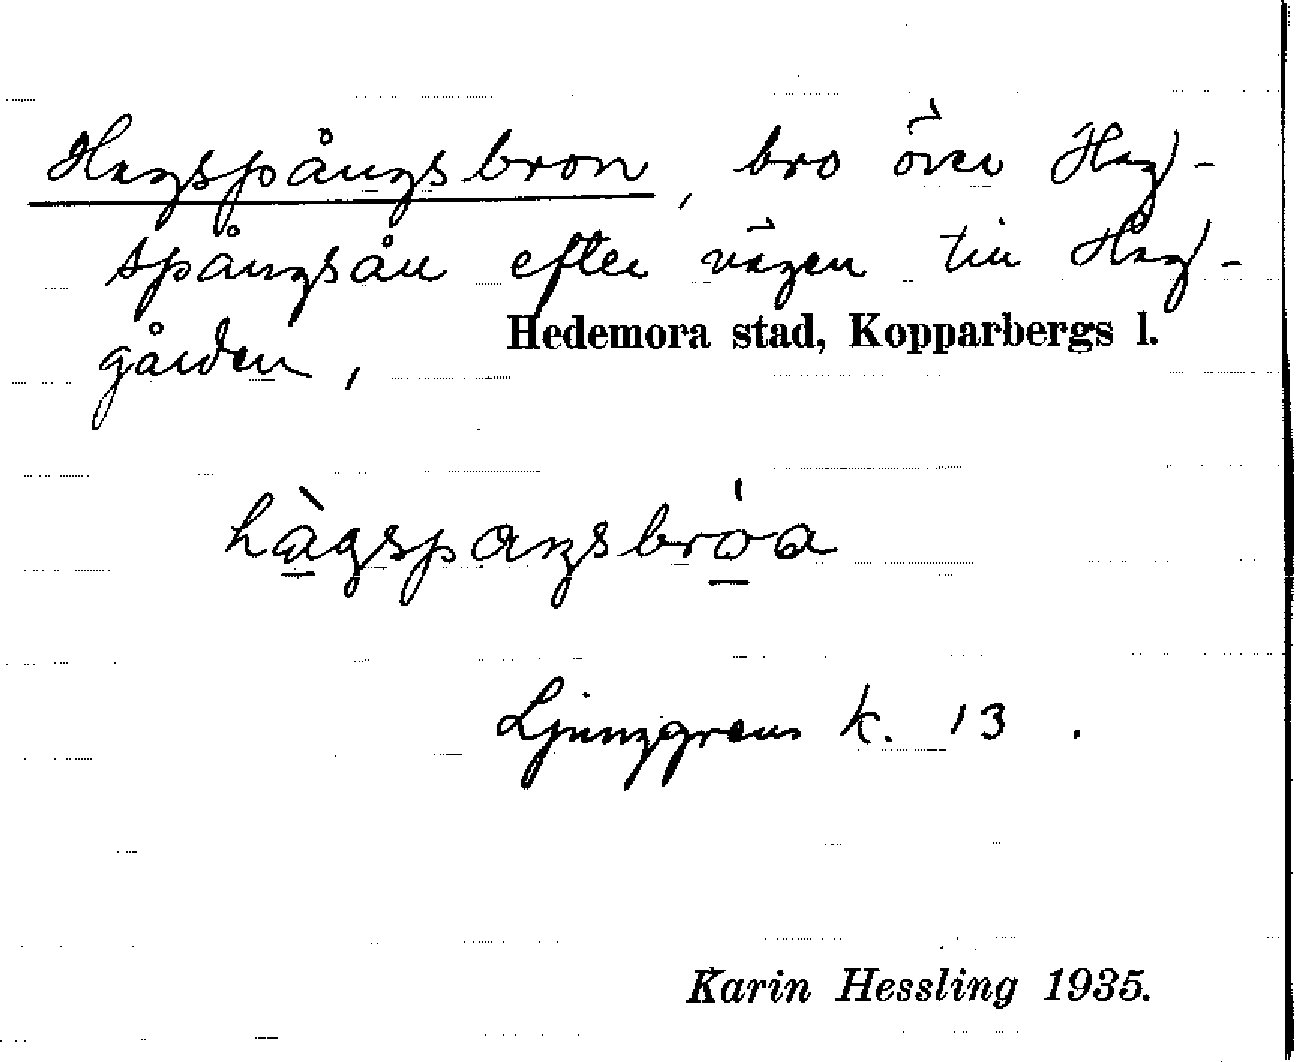 Hagspångsbron, bro över Hag-
spångsån efter vägen till Hag-
gården,
Hedemora stad, Kopparbergs l.
hàgspaŋsbróa
Ljunggrens k. 13.
Karin Hessling 1935.